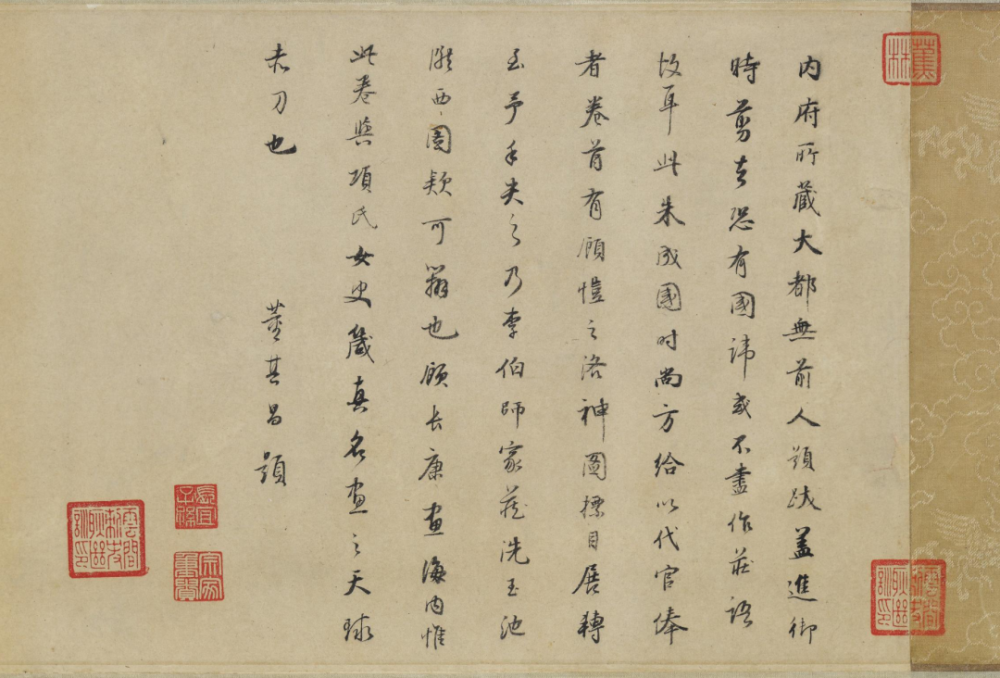 蕉林
内府所藏大都無前人題跋蓋進御
時剪去恐有國諱或不盡作莊語
故耳此朱成國時尚方給以代官俸
者卷首有顧愷之洛神圖標目展轉
至予手失之乃李伯師家藏洗玉池
西圖款可辨也顧長康畫海内惟
此卷與項氏女史箴真名畫之天球
赤刀也
董其昌題
長宜子孫